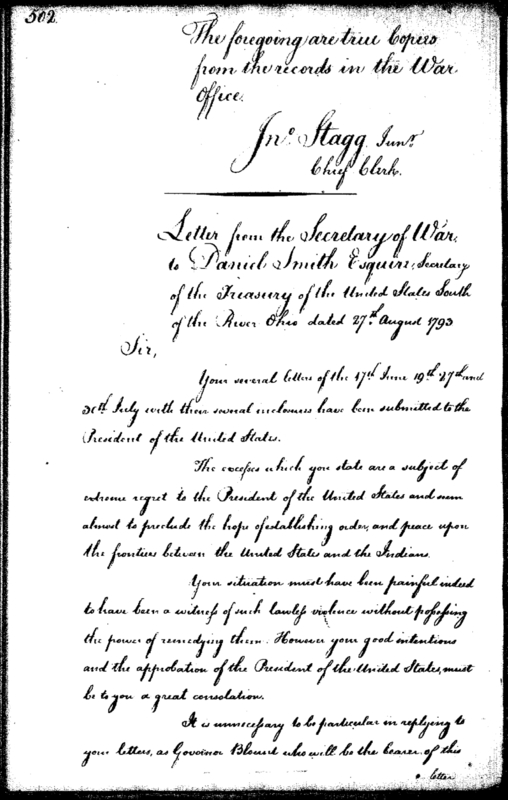 502
The foregoing are true Copies
from the records in the War
Office.
Jno. Stagg Junr.
Chief Clerk.
Letter from the Secretary of War,
to Daniel Smith Esquire, Secretary
of the Treasury of the United States South
of the River Ohio dated 27th. August 1793
Sir,
Your several letters of the 17th June 19th 27th and
30th July with their several enclosures have been submitted to the
President of the United States.
The excesses which you state are a subject of
extreme regret to the President of the United States and seem
almost to preclude the hope of establishing order, and peace upon
the frontiers between the United States and the Indians.
Your situation must have been painful indeed
to have been a witness of such lawless violence without possessing
the power of remedying them. However your good intentions
and the approbation of the President of the United States, must
be to you a great consolation.
It is unnecessary to be particular in replying to
your letters, as Governor Blount who will be the bearer of this
letter